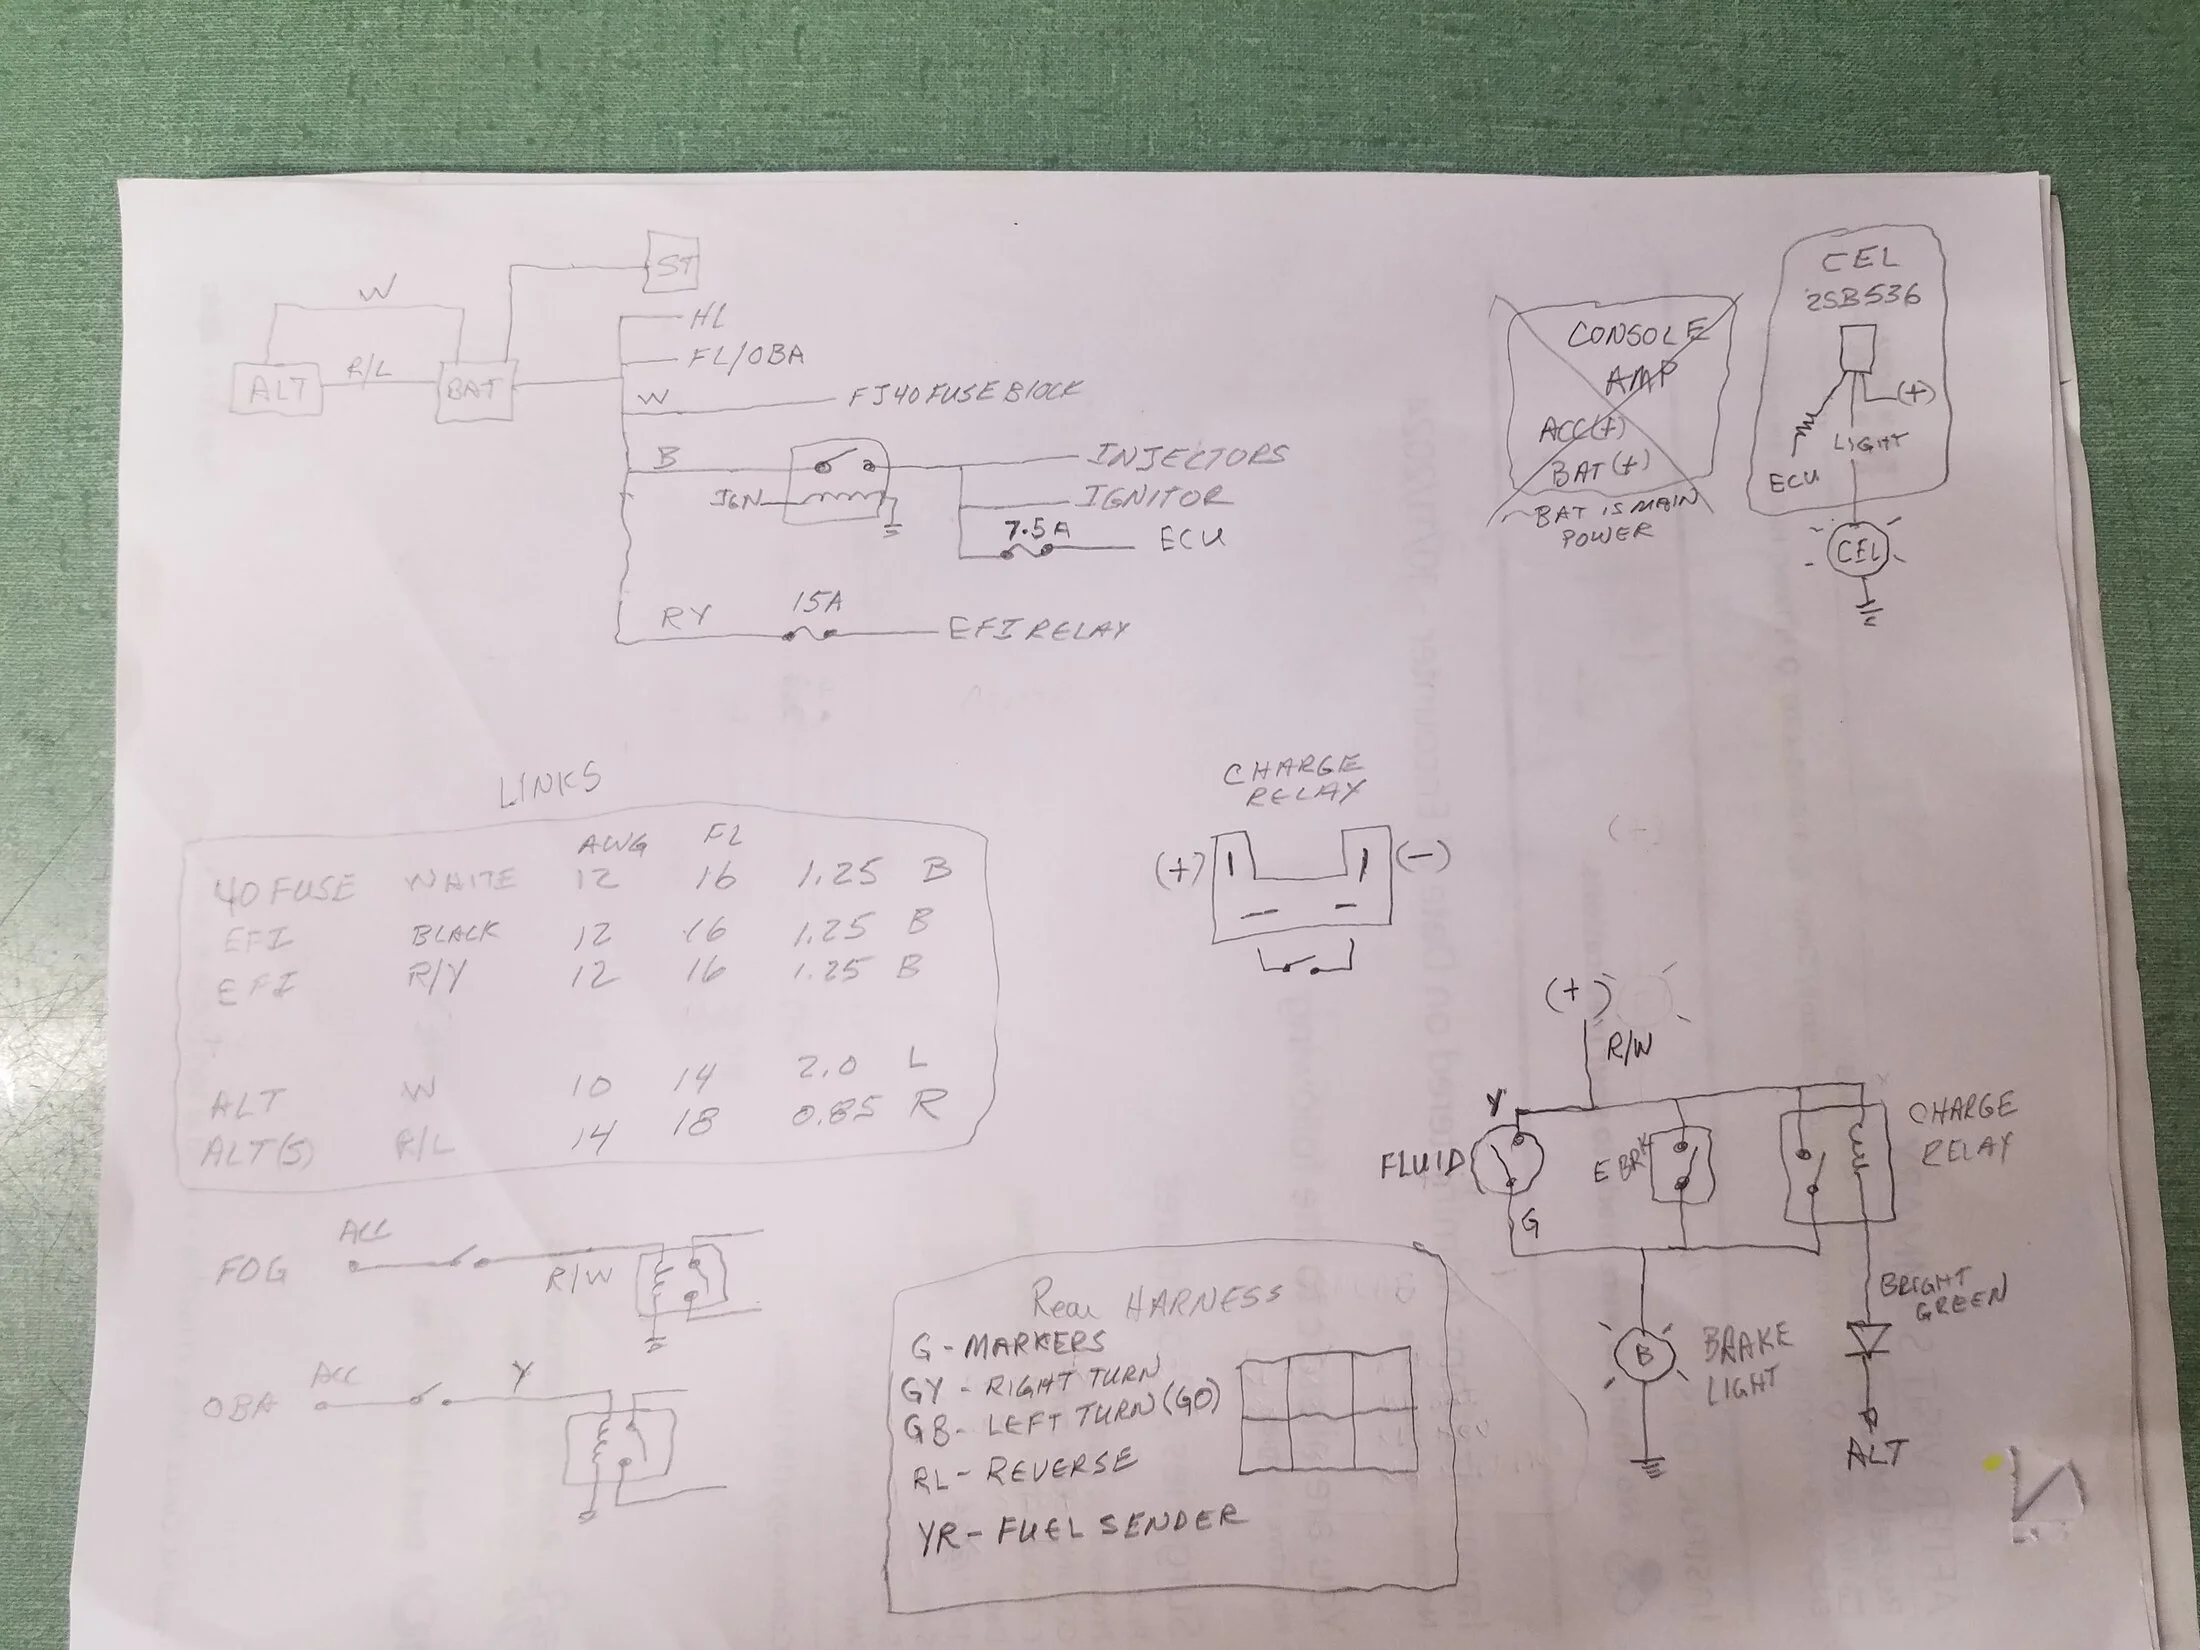 ST
W
HL
R/L
FL/OBA
ALT
BAT
W
FJ40 FUSE BLOCK
B
INJECTORS
IGN
IGNITOR
7.5A
ECU
RY
15A
EFI RELAY
CONSOLE
AMP
ACC(+)
BAT(+)
BAT IS MAIN
POWER
CEL
2SB536
(+)
LIGHT
ECU
CEL
LINKS
AWG FL
40 FUSE WHITE 12 16 1.25 B
EFI BLACK 12 16 1.25 B
EFI R/Y 12 16 1.25 B
ALT W 10 14 2.0 L
ALT(S) R/L 14 18 0.85 R
CHARGE
RELAY
(+) (-)
(+)
R/W
Y
FLUID
E BRK
CHARGE
RELAY
G
BRIGHT
GREEN
B
BRAKE
LIGHT
ALT
FOG
ACC
R/W
OBA
ACC
Y
Rear HARNESS
G - MARKERS
GY - RIGHT TURN
GB - LEFT TURN (GO)
RL - REVERSE
YR - FUEL SENDER